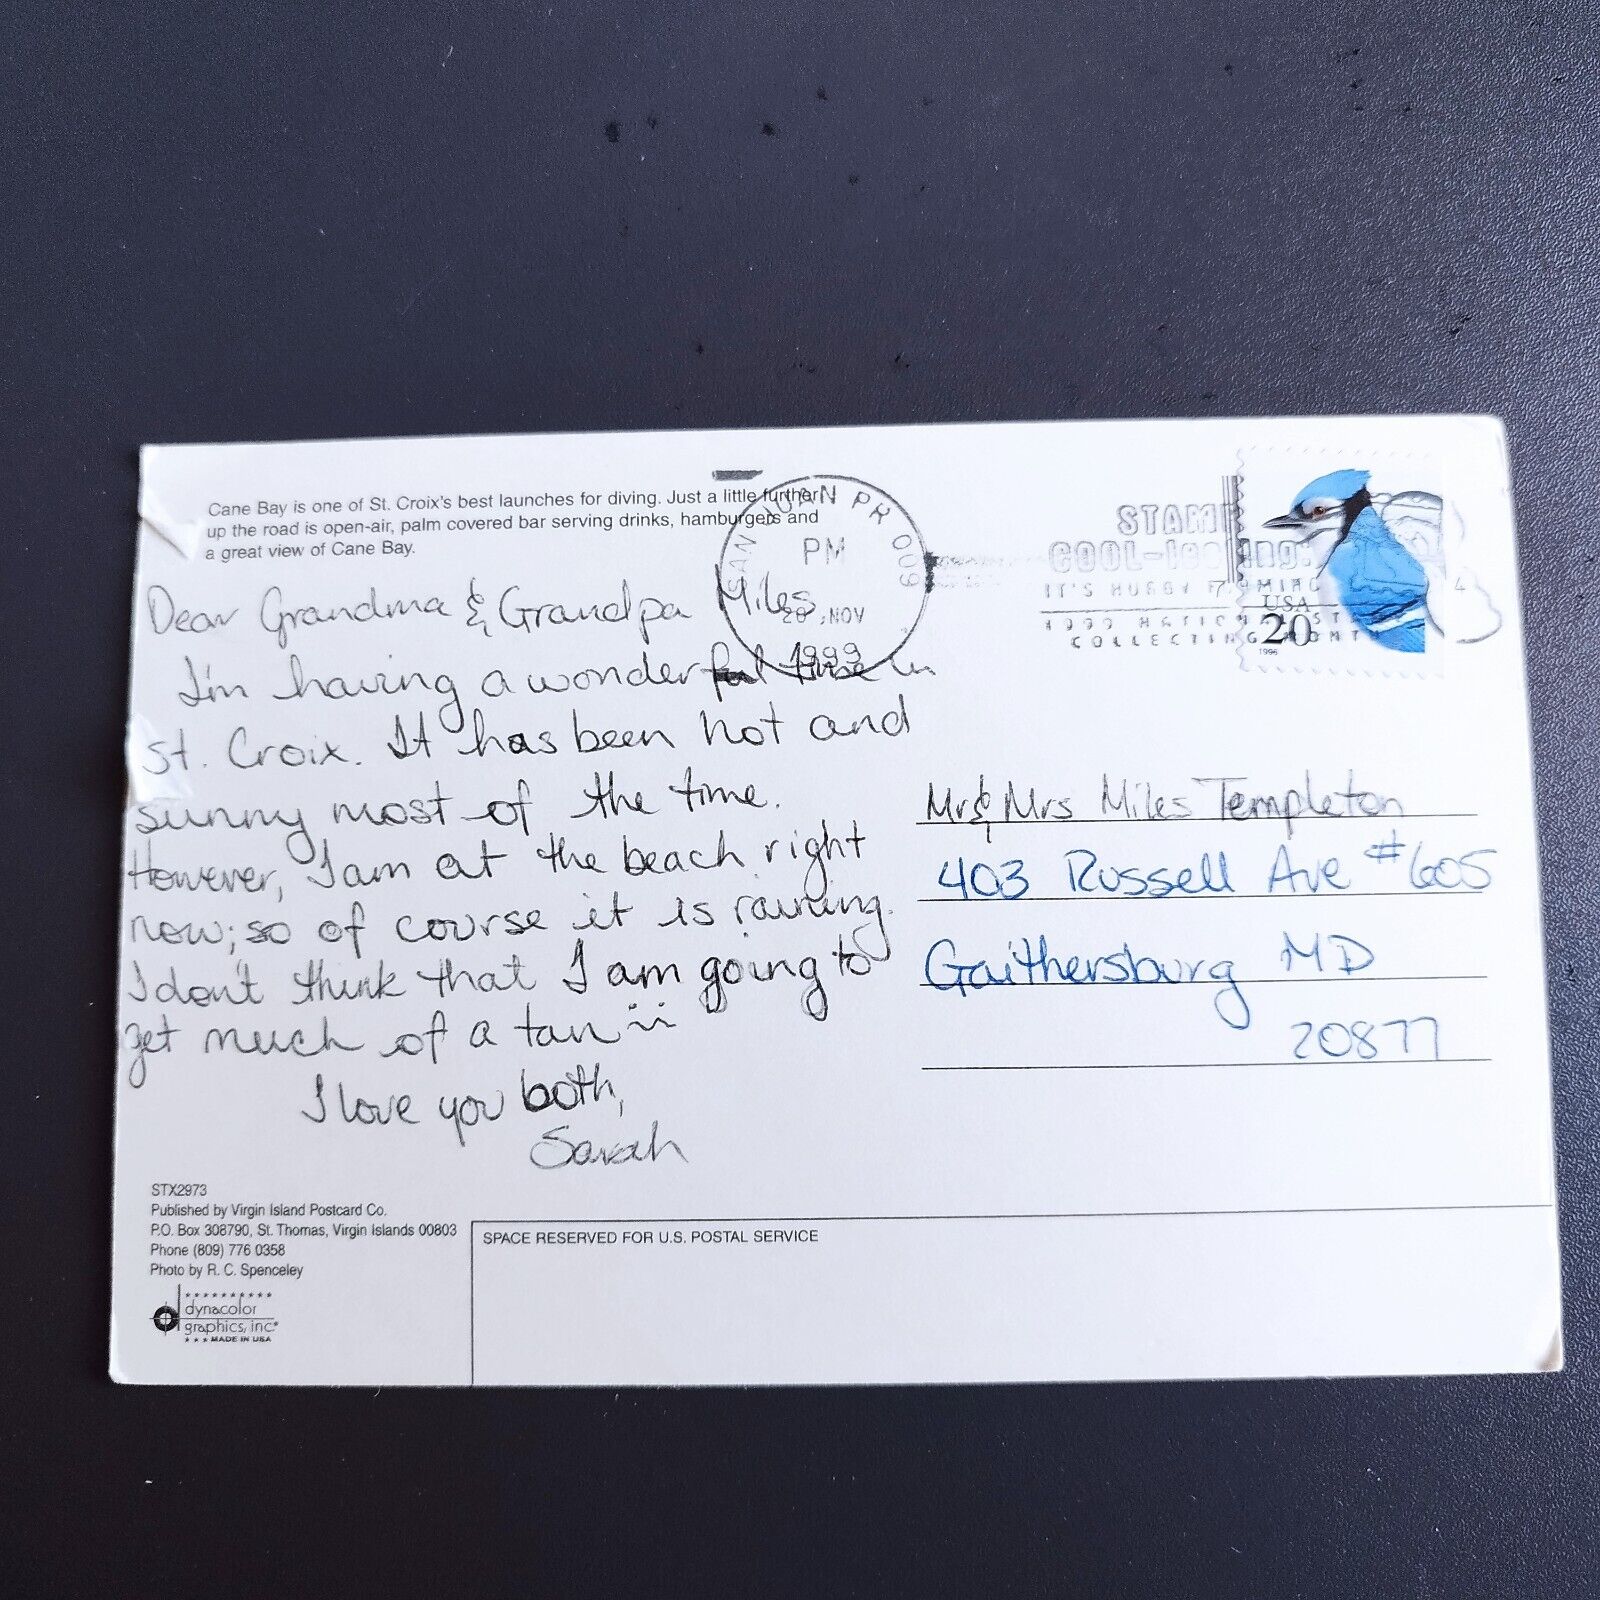 Cane Bay is one of St. Croix's best launches for diving. Just a little further
up the road is open-air, palm covered bar serving drinks, hamburgers and
a great view of Cane Bay.
SAN JUAN PR 009
PM
20 NOV
1999
STAMP
COOL-
IT'S HOBBY
1999 NATIONAL ST
COLLECTING MONTH
USA
20
1996
Dear Grandma & Grandpa Miles,
I'm having a wonderful time in
St. Croix. It has been hot and
sunny most of the time.
However, I am at the beach right
now; so of course it is raining.
I don't think that I am going to
get much of a tan
I love you both,
Sarah
Mr & Mrs Miles Templeton
403 Russell Ave #605
Gaithersburg MD
20877
STX2973
Published by Virgin Island Postcard Co.
P.O. Box 308790, St. Thomas, Virgin Islands 00803
Phone (809) 776 0358
Photo by R. C. Spenceley
dynacolor
graphics, inc.
MADE IN USA
SPACE RESERVED FOR U.S. POSTAL SERVICE